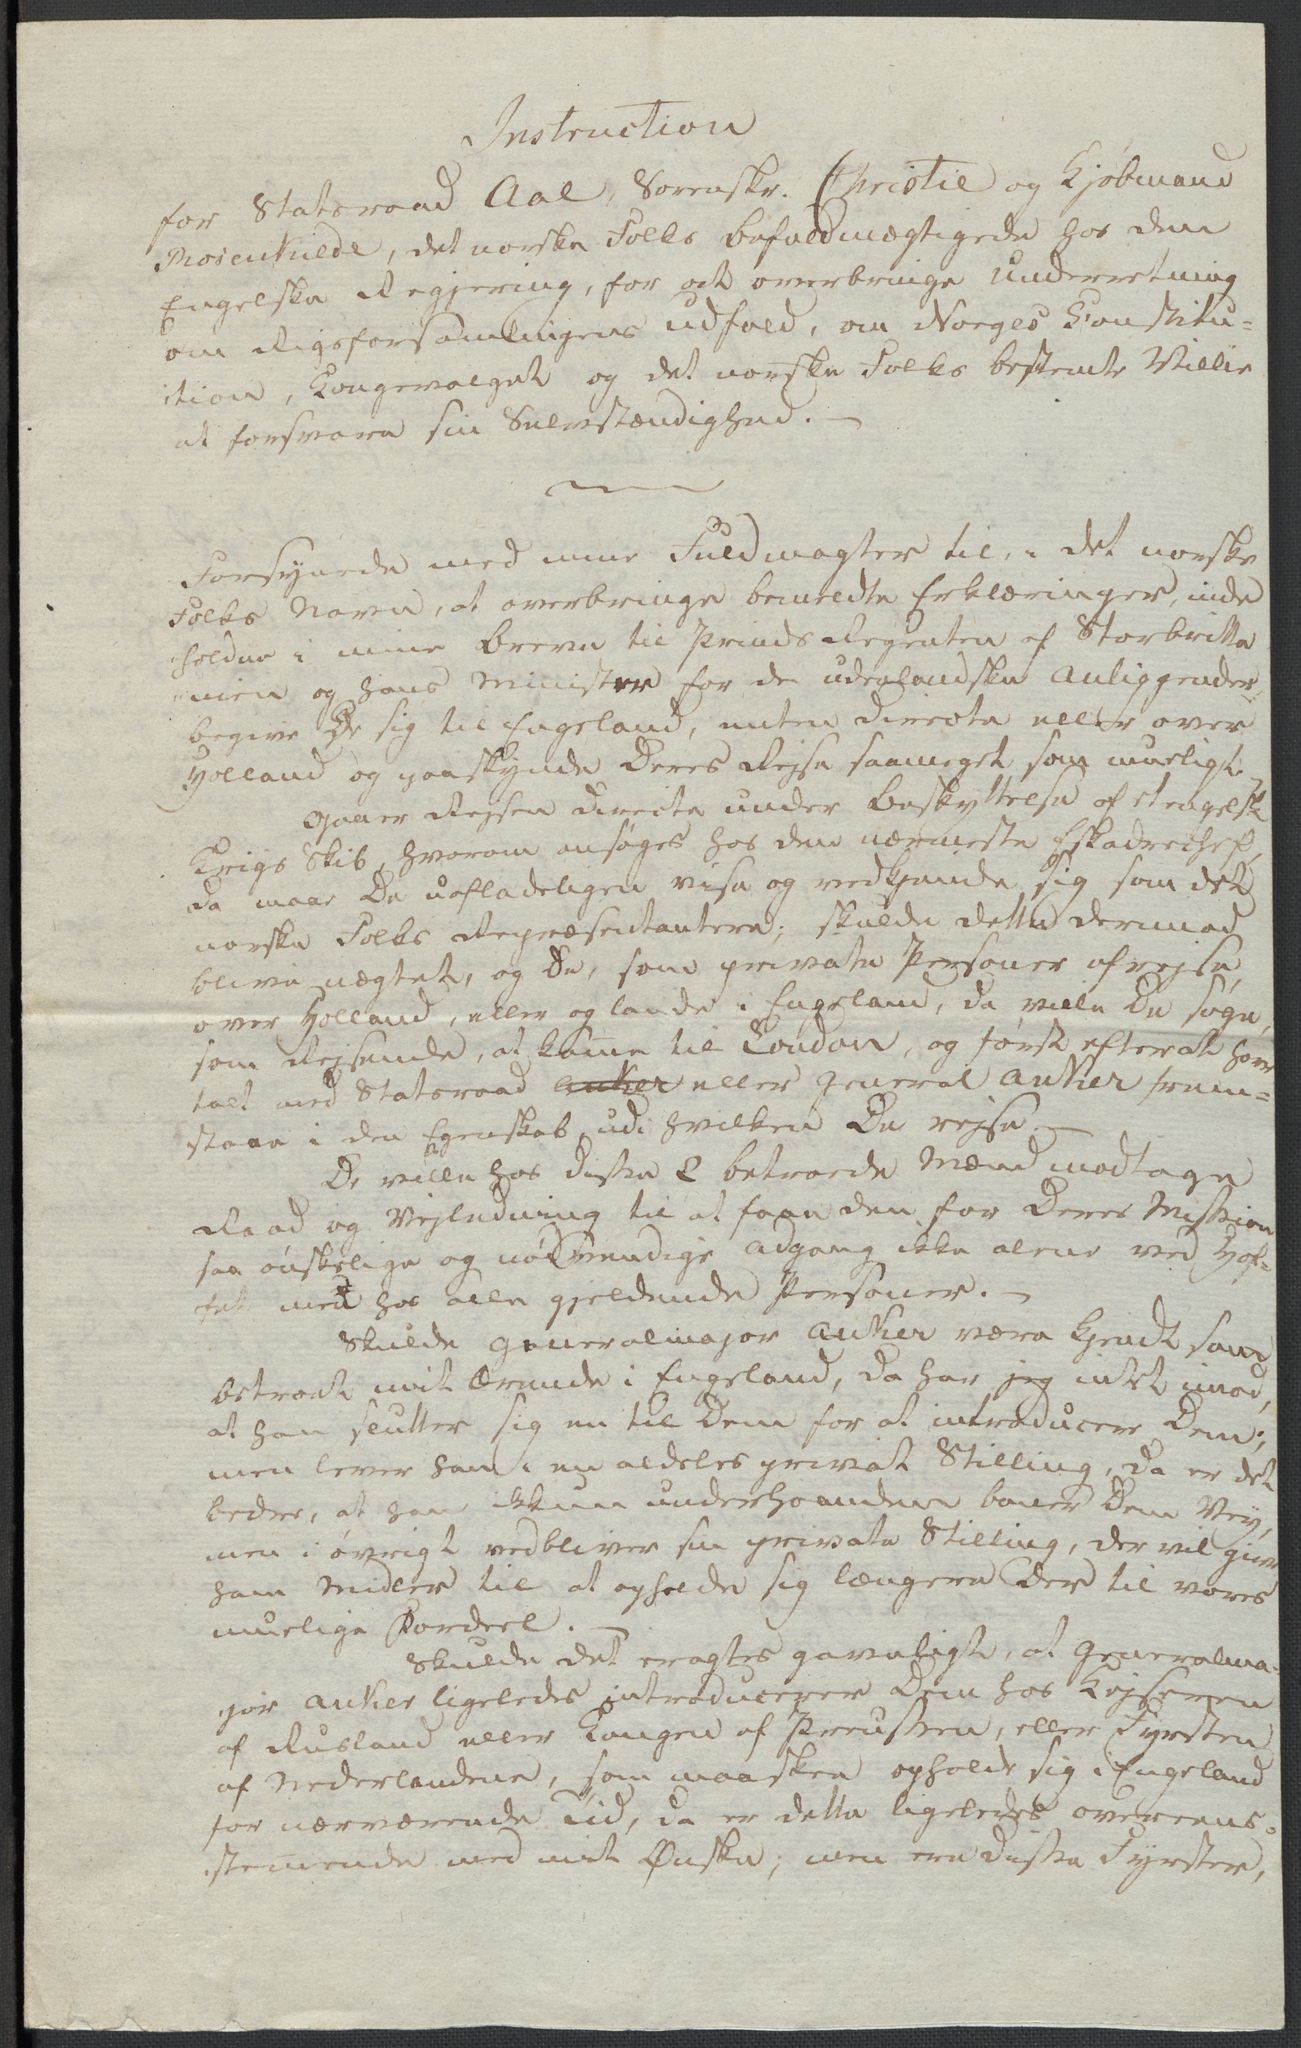 Instruction
for Statsraad Aal, Sorenskr. Christie og Kjöbmand
Rosenkilde, det norske Folks befuldmægtigede hos den
Engelske Regjering, for at overbringe Underretning
om Rigsforsamlingens Udfald, om Norges Constitu-
tion, Kongevalget og det norske Folks bestemte Villie
at forsvare sin Selvstændighed. —
Forsynede med mine Fuldmagter til, i det norske
Folks Navn, at overbringe bemeldte Erklæringer, inde
holdne i mine Breve til Prinds Regenten af Storbritta
nien og hans Minister for de udenlandske Anliggender,
begive De sig til Engeland, enten directe eller over
Holland og paaskynde Deres Rejse saameget som mueligt.
Gaaer Rejsen directe under Beskyttelse af et engelsk
Krigs Skib, hvorom ansøges hos den nærmeste Eskadrechef,
da maae De uopladeligen vise og vedkjende sig som det
norske Folks Repræsentantere; skulde dette derimod
blive nægtet, og De, som private Personer afrejse
over Holland, eller og lande i Engeland, da ville De søge,
som Rejsende, at komme til London, og først efterat have
talt med Statsraad Anker eller General Anker frem-
staae i den Egenskab, udi hvilken De rejse. —
De ville hos disse 2 betroede Mænd modtage
Raad og Vejledning til at faae den for Deres Mission
saa ønskelige og nødvendige Adgang ikke alene ved Hof-
fet men hos alle gjeldende Personer. —
Skulde Generalmajor Anker være kjendt som
betroet mit Ærende i Engeland, da har jeg intet imod,
at han slutter sig en til Dem for at introducere Dem;
men lever han i en aldeles privat Stilling, da er det
bedre, at han ikkun underhaanden baner Dem Vej,
men i øvrigt vedbliver sin private Stilling, der vil give
ham Midler til at opholde sig længere der til vores
muelige Fordeel. —
Skulde det eragtes gavnligt, at Generalma-
jor Anker ligeledes introducerer Dem hos Kejseren
af Rusland eller Kongen af Preussen, eller Fyrsten
af Nederlandene, som maaskee opholde sig i Engeland
for nærværende Tid, da er dette ligeledes overeens-
stemmende med mit Ønske; men ere disse Fyrster,